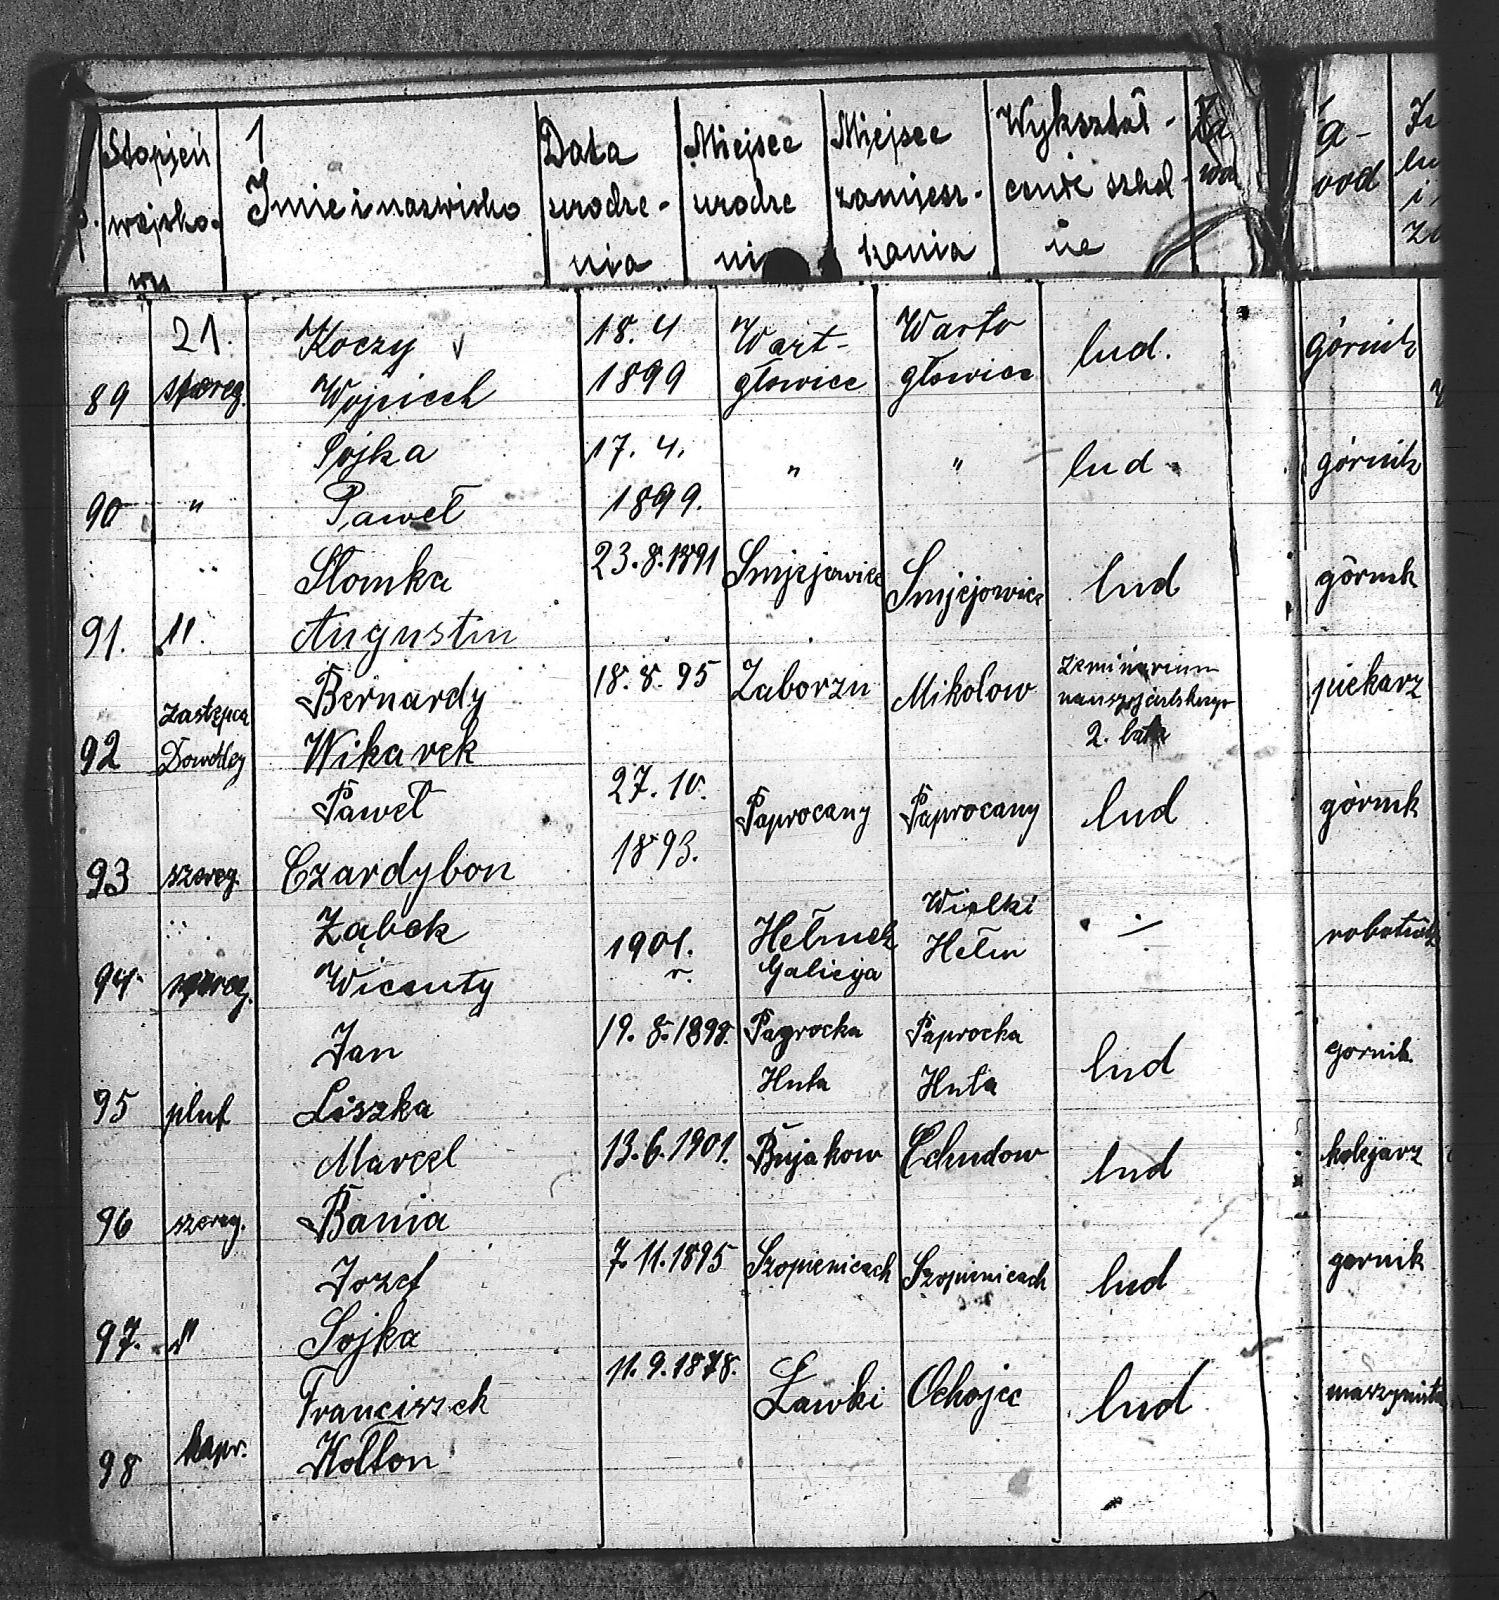 Stopień wojsko-
1
Imie i nazwisko
Data urodze-nia
Miejsce urodze ni
Miejsce zamiesz-kania
Wykształ-cenie szkol ne
21.
89 szereg. Koczy Wojciech 18. 4 1899 Wart-głowice Warto głowice lud. górnik
90 " Sojka Paweł 17. 4. 1899. " " lud górnik
91. 11. Słomka Augustin 23.8.1891 Smjejowice Smjejowice lud górnik
92 Zastępca Dowódcy Bernardy Wikarek 18. 8. 95 Zaborzu Mikołow 2. lata piekarz
93 szereg. Paweł Czardybon 27. 10. 1893. Paprocany Paprocany lud górnik
94. szereg. Ząbek Wicenty 1901. r. Hełmek Galicyja Wielki Hełm robotnik
95 plut Jan Liszka 19. 8. 1898. Paprocka Huta Paprocka Huta lud gornik
96 szereg. Marcel Bania 13.6.1901. Bujakow Chudow lud kolejarz
97. " Jozef Sojka 7.11.1895 Szopienicach Szopienicach lud gornik
98 kapr. Franciszek Kołton 11.9.1878. Ławki Ochojec lud